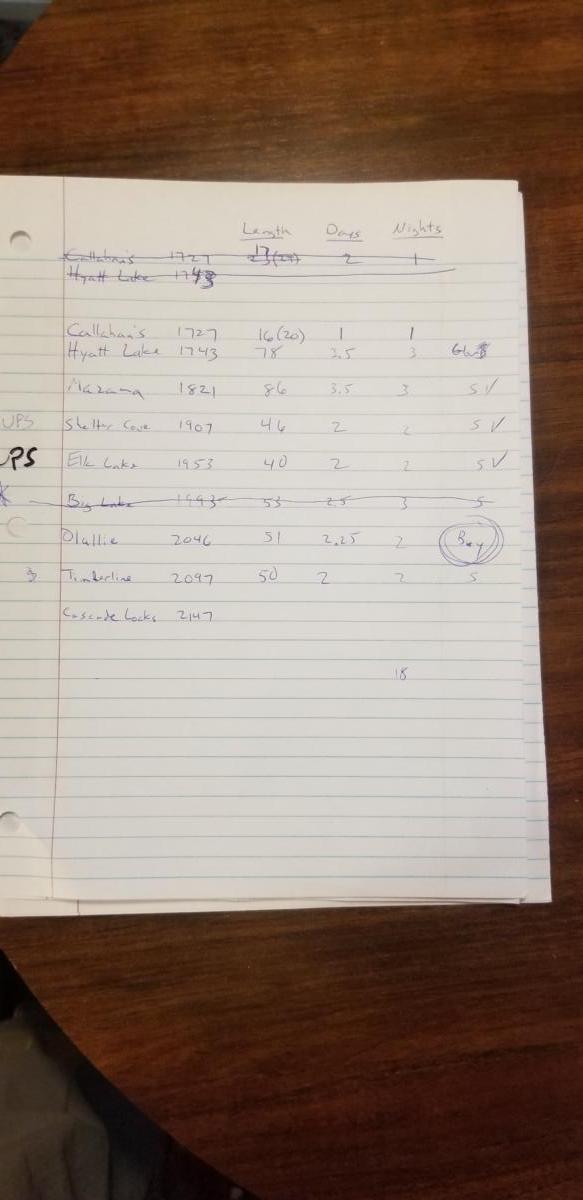 Length Days Nights
Callahan's 1727 2 1
Hyatt Lake 1743
Callahan's 1727 16(20) 1 1
Hyatt Lake 1743 78 3.5 3
Mazama 1821 86 3.5 3 S ✓
UPS Shelter Cove 1907 46 2 2 S ✓
UPS Elk Lake 1953 40 2 2 S ✓
Big Lake 1993 53 2.5 3 S
Olallie 2046 51 2.25 2 Buy
Timberline 2097 50 2 2 S
Cascade Locks 2147
18